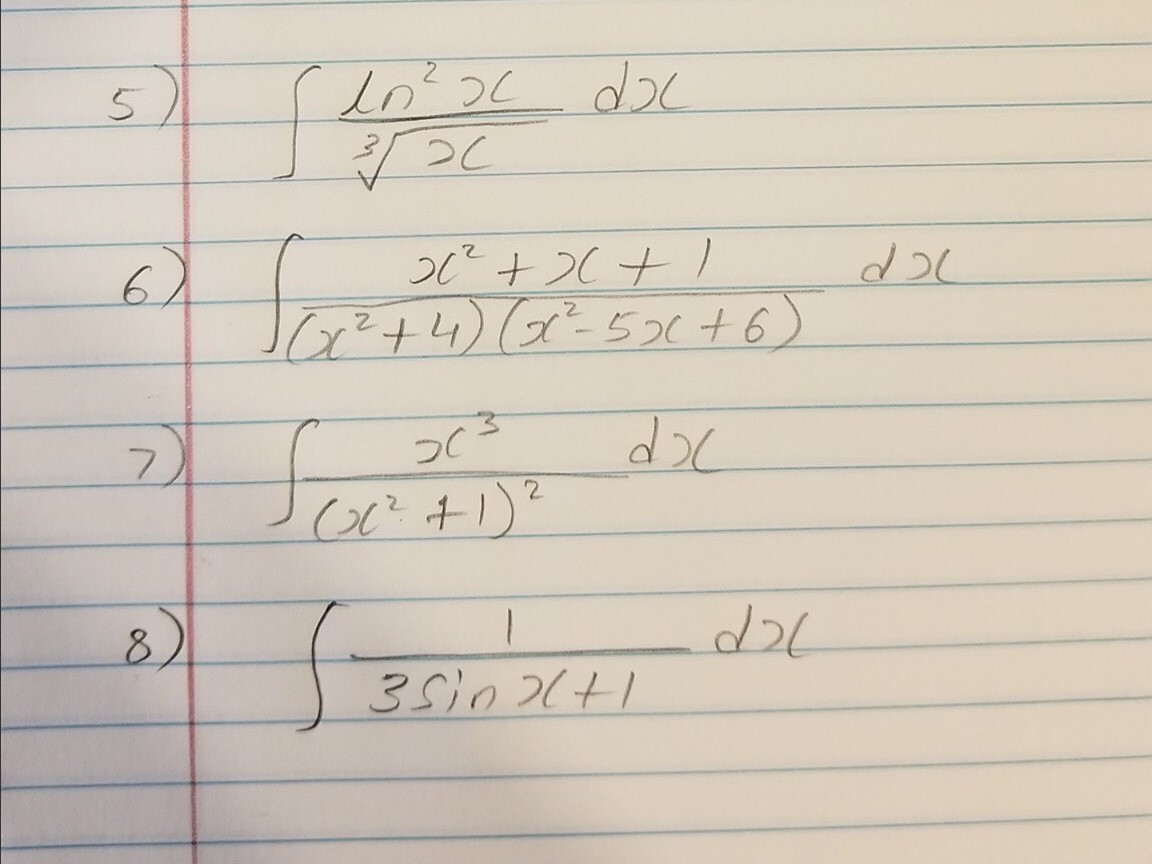 5) ∫ ln² x / ∛x dx
6) ∫ x² + x + 1 / (x² + 4) (x² - 5x + 6) dx
7) ∫ x³ / (x² + 1)² dx
8) ∫ 1 / 3 sin x + 1 dx